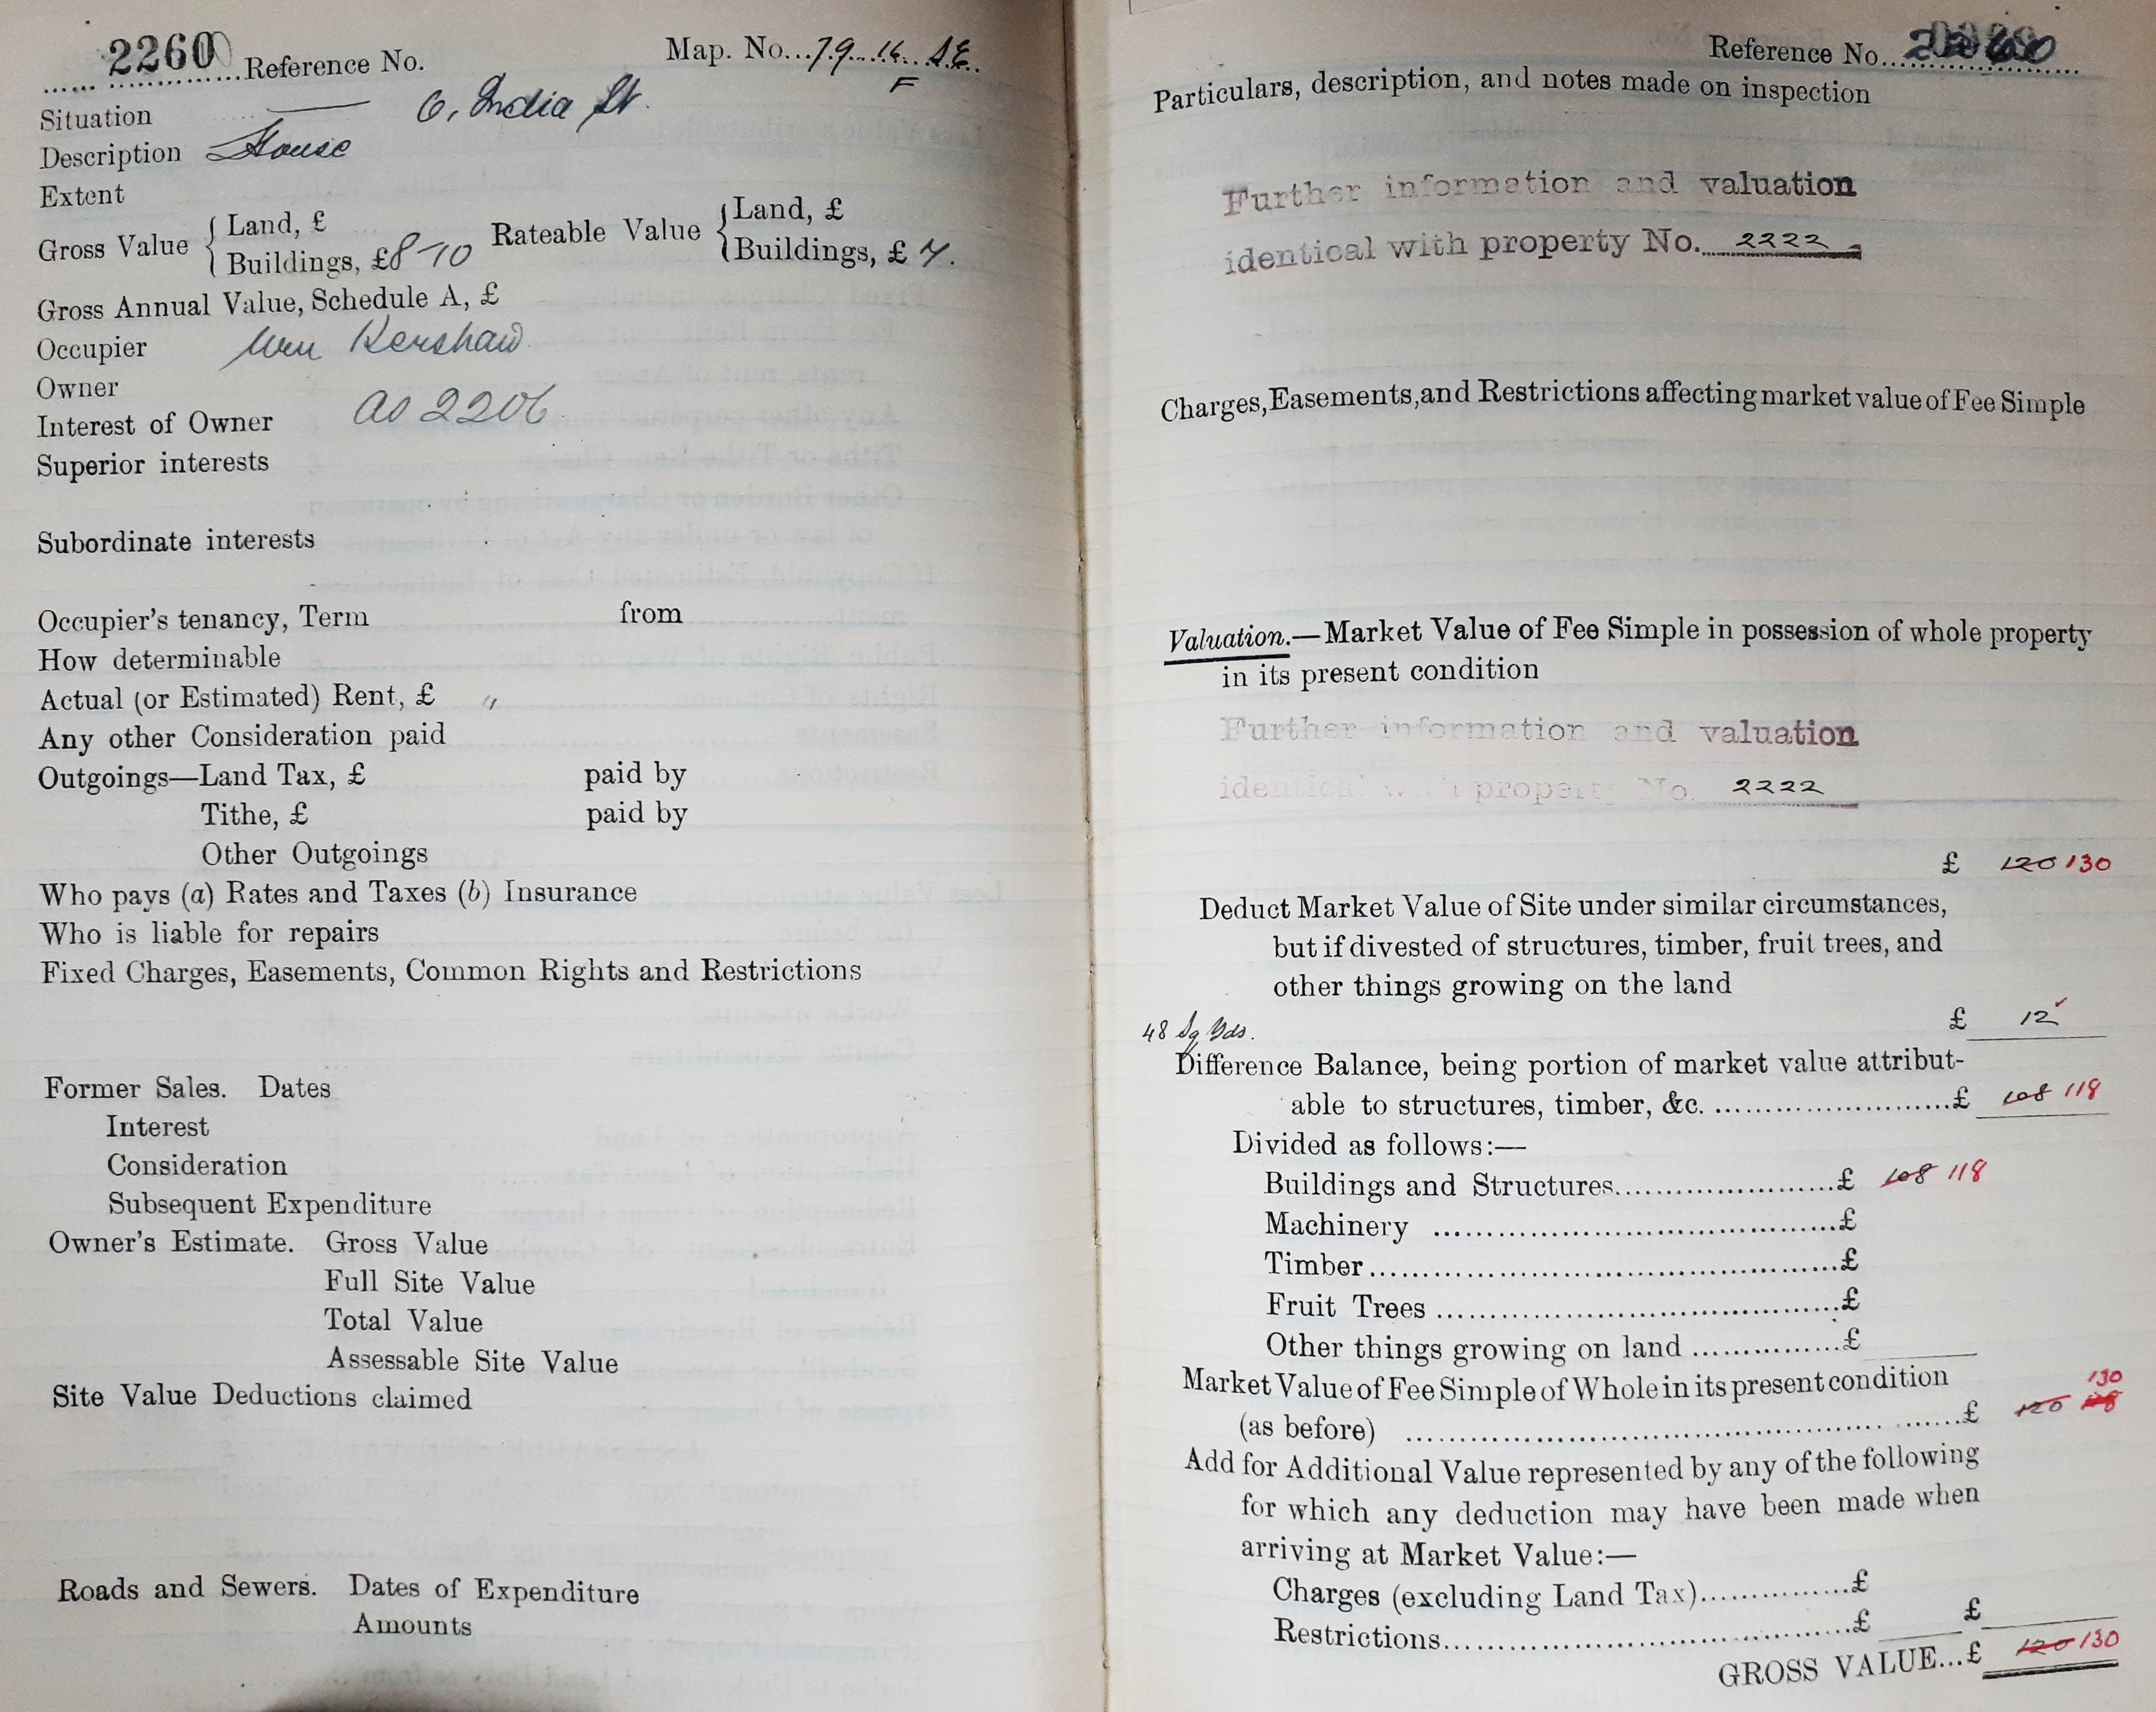 2260 Reference No. Map. No. 79.16. S.E.
F
Situation 6, India St.
Description House
Extent
Gross Value { Land, £
Buildings, £8-10
Rateable Value { Land, £
Buildings, £ 7.
Gross Annual Value, Schedule A, £
Occupier Wm Kershaw
Owner
Interest of Owner as 2206
Superior interests
Subordinate interests
Occupier's tenancy, Term from
How determinable
Actual (or Estimated) Rent, £ "
Any other Consideration paid
Outgoings—Land Tax, £ paid by
Tithe, £ paid by
Other Outgoings
Who pays (a) Rates and Taxes (b) Insurance
Who is liable for repairs
Fixed Charges, Easements, Common Rights and Restrictions
Former Sales. Dates
Interest
Consideration
Subsequent Expenditure
Owner's Estimate. Gross Value
Full Site Value
Total Value
Assessable Site Value
Site Value Deductions claimed
Roads and Sewers. Dates of Expenditure
Amounts
Reference No. 2260
Particulars, description, and notes made on inspection
Further information and valuation
identical with property No. 2222
Charges, Easements, and Restrictions affecting market value of Fee Simple
Valuation.—Market Value of Fee Simple in possession of whole property
in its present condition
Further information and valuation
identical with property No. 2222
£ 120 130
Deduct Market Value of Site under similar circumstances,
but if divested of structures, timber, fruit trees, and
other things growing on the land
48 Sq Yds. £ 12
Difference Balance, being portion of market value attribut-
able to structures, timber, &c. £ 108 118
Divided as follows:—
Buildings and Structures £ 108 118
Machinery £
Timber £
Fruit Trees £
Other things growing on land £
Market Value of Fee Simple of Whole in its present condition
130
(as before) £ 120 118
Add for Additional Value represented by any of the following
for which any deduction may have been made when
arriving at Market Value:—
Charges (excluding Land Tax) £
Restrictions £ £
GROSS VALUE...£ 120 130